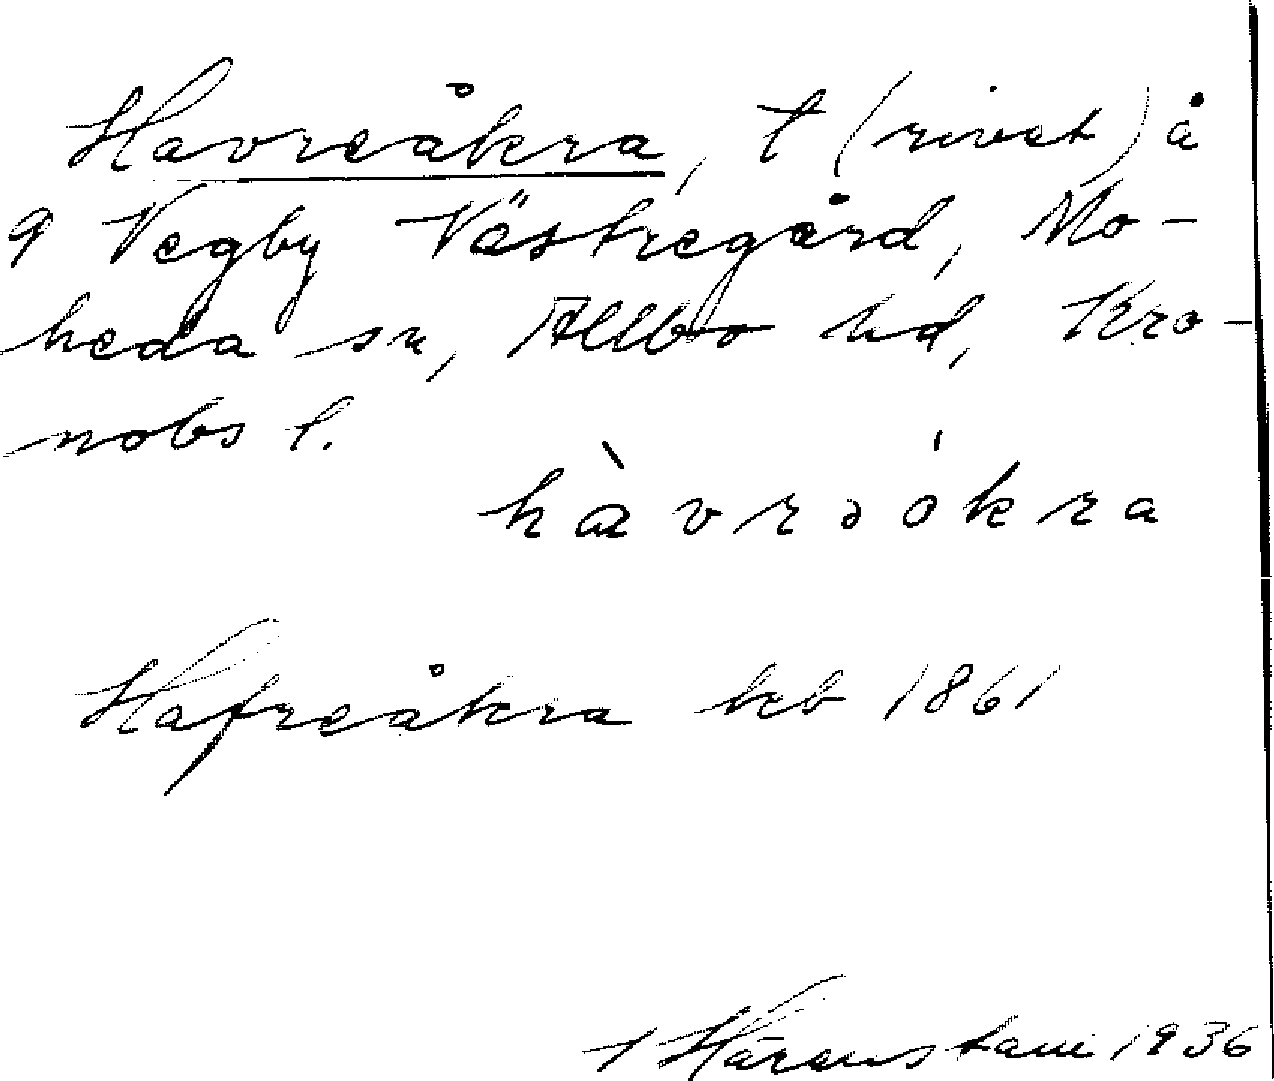 Havreåkra, t (rivet) å
9 Vegby Västregård, Mo-
heda sn, Allbo hd, Kro-
nobs l.
hàvrəókra
Hafreåkra kb 1861
1936